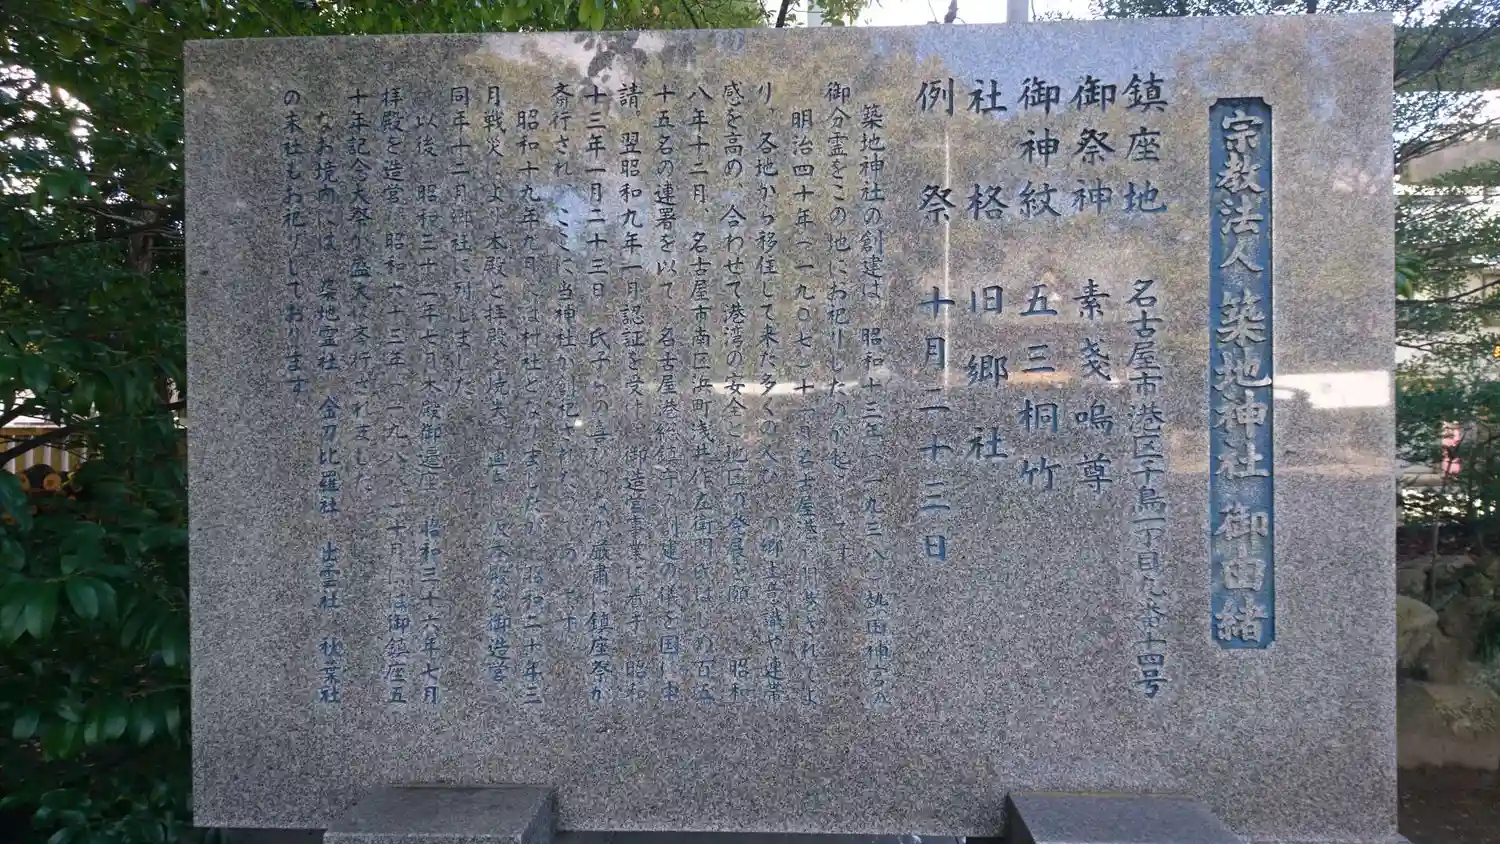 宗教法人 築地神社 御由緒
鎮座地 名古屋市港区千鳥一丁目九番十四号
御祭神 素戔嗚尊
御神紋 五三桐竹
社格 旧郷社
例祭 十月二十三日
築地神社の創建は、昭和十三年(一九三八)熱田神宮の
御分霊をこの地にお祀りしたのが
明治四十年(一九〇七)十一月名古屋港が開港されてよ
り、各地から移住して来た多くの人びとの郷土意識や連帯
感を高め、合わせて港湾の安全と地区の発展を願い、昭和
八年十二月、名古屋市南区浜町浅井作左衛門氏はじめ百五
十五名の連署を以て、名古屋港総鎮守の創建の儀を国に申
請。翌昭和九年一月認証を受け、御造営事業に着手、昭和
十三年一月二十三日 氏子らの喜びのなか厳粛に鎮座祭が
斎行され、ここに当神社が創祀されたものです
昭和十九年九月には村社となりましたが、昭和二十年三
月戦災により本殿と拝殿を焼失、直ちに仮本殿を御造営、
同年十二月郷社に列しました。
以後、昭和三十一年七月本殿御遷座、昭和三十六年七月
拝殿を造営、昭和六十三年(一九八八)十月には御鎮座五
十年記念大祭が盛大に斎行されました。
なお境内には、築地霊社 金刀比羅社 出雲社 秋葉社
の末社もお祀りしております。